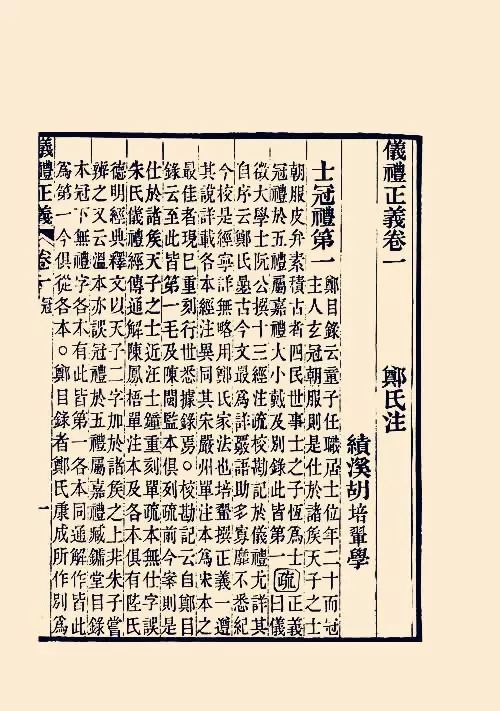 儀禮正義卷一　鄭氏注
績溪胡培翬學
士冠禮第一
鄭目錄云童子任職居士位年二十而冠
主人玄冠朝服則是仕於諸侯天子之士
朝服皮弁素積古者四民世事士之子恆爲士
冠禮於五禮屬嘉禮大小戴及別錄此皆第一
疏
正義
曰儀
徵大學士阮公撰十三經注疏校勘記於儀禮尤詳其
自序云鄭氏曡古今文最爲詳覈語助多寡靡不悉紀
今校是經寧詳無略用鄭氏家法也培翬撰正義一遵
其說詳載各本經注異同其宋嚴州單注本爲宋本之
最佳者現已重刻行世悉據錄焉○校勘記云自鄭目
錄云至此皆第一毛及陳閩監本俱列疏前今案則是
仕於諸侯天子之士近汪士鐘重刻單疏本無仕字誤
朱氏儀禮經傳通解陳鳳梧單注本及各本俱有陸氏
德明經典釋文以天子二字加於諸侯之上非朱子嘗
辨之又云溫本亦誤冠禮於五禮屬嘉禮臧鏞堂目錄
本冠下無禮字各本有此皆第一各本同通解作皆此
爲第一今俱從各本○鄭目錄者鄭氏康成所作別爲
儀禮正義　卷一　冠　一